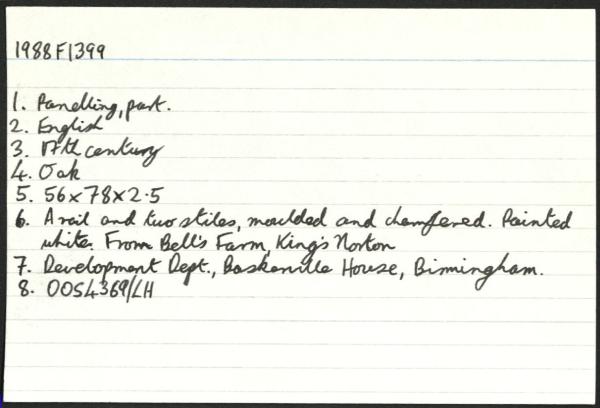 1988F1399
1. Panelling, part.
2. English
3. 17th century
4. Oak
5. 56x78x2.5
6. A rail and two stiles, moulded and chamfered. Painted
white. From Bell's Farm, King's Norton
7. Development Dept., Baskerville House, Birmingham.
8. OOS4369/LH